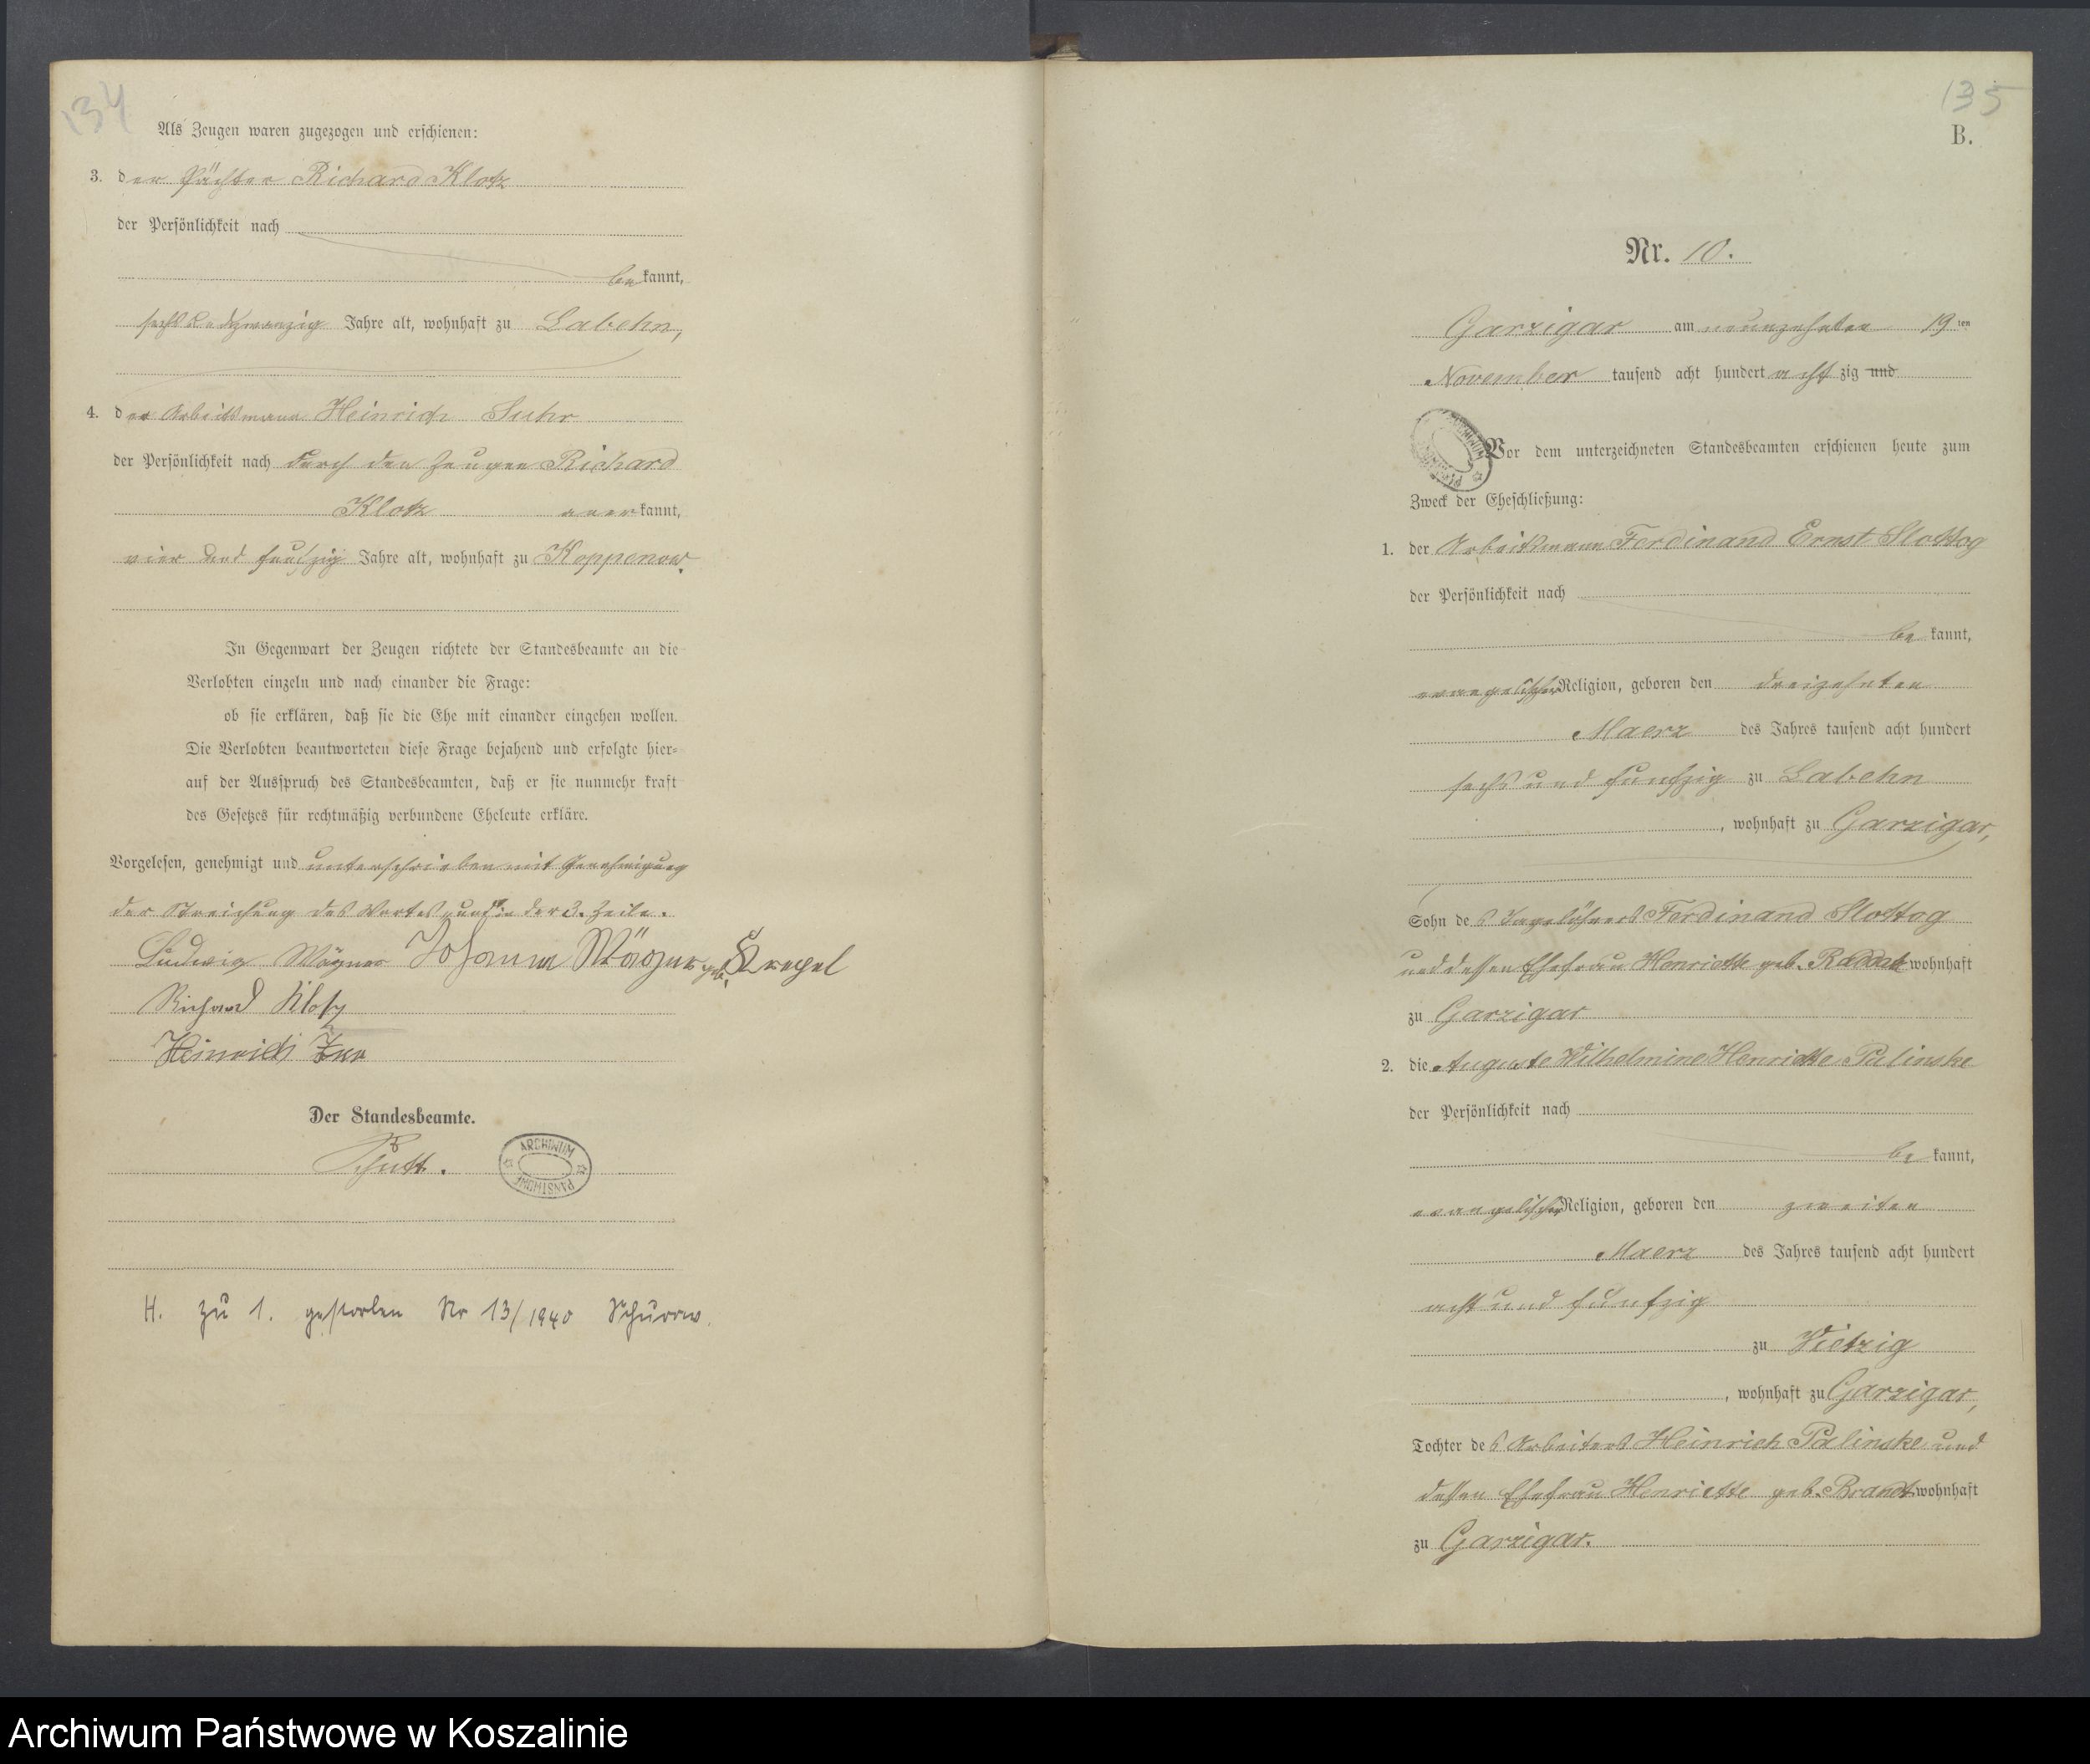 134
Als Zeugen waren zugezogen und erschienen:
3. der Pächter Richard Klotz
der Persönlichkeit nach
bekannt,
sechs und zwanzig Jahre alt, wohnhaft zu Labehn,
4. der Arbeitsmann Heinrich Suhr
der Persönlichkeit nach durch den Zeugen Richard
Klotz anerkannt,
vier und funfzig Jahre alt, wohnhaft zu Koppenow.
In Gegenwart der Zeugen richtete der Standesbeamte an die
Verlobten einzeln und nach einander die Frage:
ob sie erklären, daß sie die Ehe mit einander eingehen wollen.
Die Verlobten beantworteten diese Frage bejahend und erfolgte hier-
auf der Ausspruch des Standesbeamten, daß er sie nunmehr kraft
des Gesetzes für rechtmäßig verbundene Eheleute erkläre.
Vorgelesen, genehmigt und unterschrieben mit Genehmigung
der Streichung des Wortes „und“ in der 3. Zeile.
Ludwig Wägner Johanna Wägner geb.
Richard Klotz
Heinrich
Der Standesbeamte.
ARCHIWUM PAŃSTWOWE
H. zu 1. gestorben Nr 13/1940 Schurow.
135
B.
Nr. 10.
Garzigar am neunzehnten 19ten
November tausend acht hundert achtzig und
Vor dem unterzeichneten Standesbeamten erschienen heute zum
Zweck der Eheschließung:
1. der Arbeitsmann Ferdinand Ernst Slottog
der Persönlichkeit nach
bekannt,
evangelischer Religion, geboren den dreizehnten
Maerz des Jahres tausend acht hundert
sechs und funfzig zu Labehn
, wohnhaft zu Garzigar,
Sohn des Tagelöhners Ferdinand Slottog
und dessen Ehefrau Henriette geb. Raddatz wohnhaft
zu Garzigar
2. die Auguste Wilhelmine Henriette Palinske
der Persönlichkeit nach
bekannt,
evangelischer Religion, geboren den zweiten
Maerz des Jahres tausend acht hundert
acht und funfzig
zu Vietzig
, wohnhaft zu Garzigar,
Tochter des Arbeiters Heinrich Palinske und
dessen Ehefrau Henriette geb. Brandt wohnhaft
zu Garzigar.
Archiwum Państwowe w Koszalinie